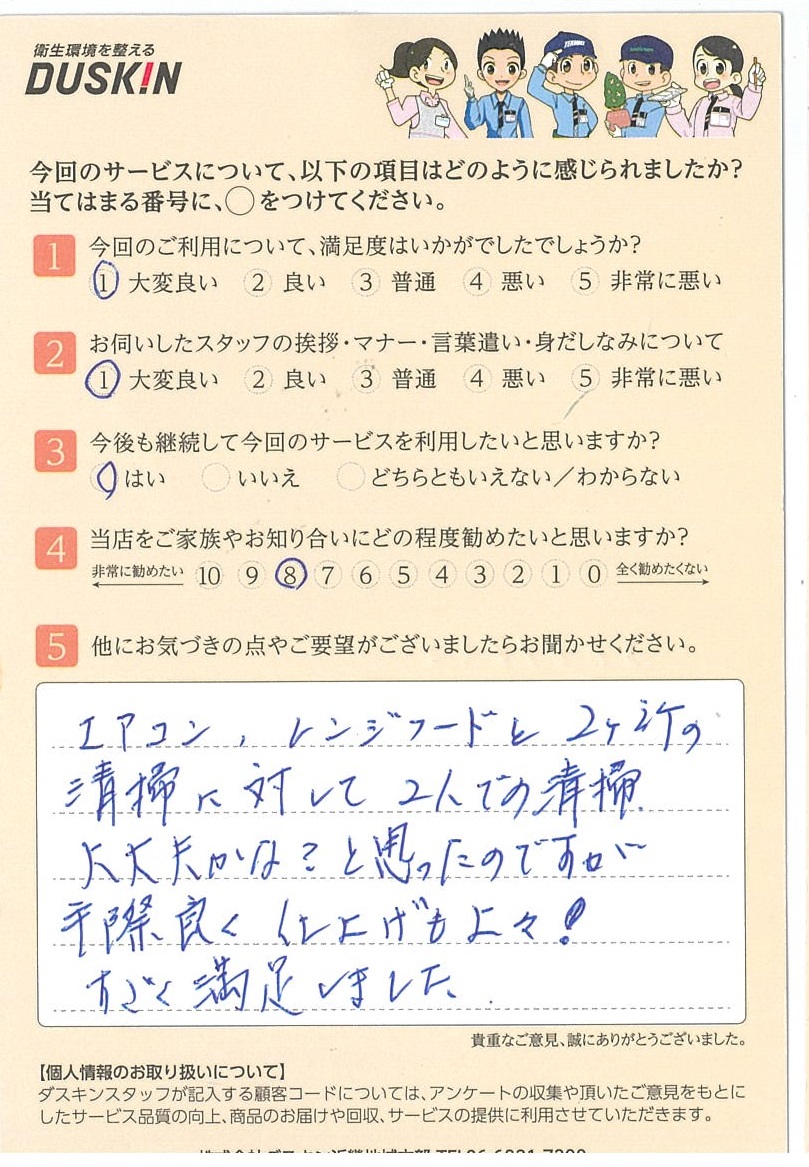 衛生環境を整える
DUSKIN
今回のサービスについて、以下の項目はどのように感じられましたか?
当てはまる番号に、○をつけてください。
1 今回のご利用について、満足度はいかがでしたでしょうか?
1 大変良い 2 良い 3 普通 4 悪い 5 非常に悪い
2 お伺いしたスタッフの挨拶・マナー・言葉遣い・身だしなみについて
1 大変良い 2 良い 3 普通 4 悪い 5 非常に悪い
3 今後も継続して今回のサービスを利用したいと思いますか?
はい いいえ どちらともいえない/わからない
4 当店をご家族やお知り合いにどの程度勧めたいと思いますか?
非常に勧めたい 10 9 8 7 6 5 4 3 2 1 0 全く勧めたくない
5 他にお気づきの点やご要望がございましたらお聞かせください。
エアコン, レンジフードと 2ヶ所の
清掃に対して 2人での清掃
大丈夫かな?と思ったのですが
手際良く 仕上げも上々!
すごく満足しました。
貴重なご意見、誠にありがとうございました。
【個人情報のお取り扱いについて】
ダスキンスタッフが記入する顧客コードについては、アンケートの収集や頂いたご意見をもとに
したサービス品質の向上、商品のお届けや回収、サービスの提供に利用させていただきます。